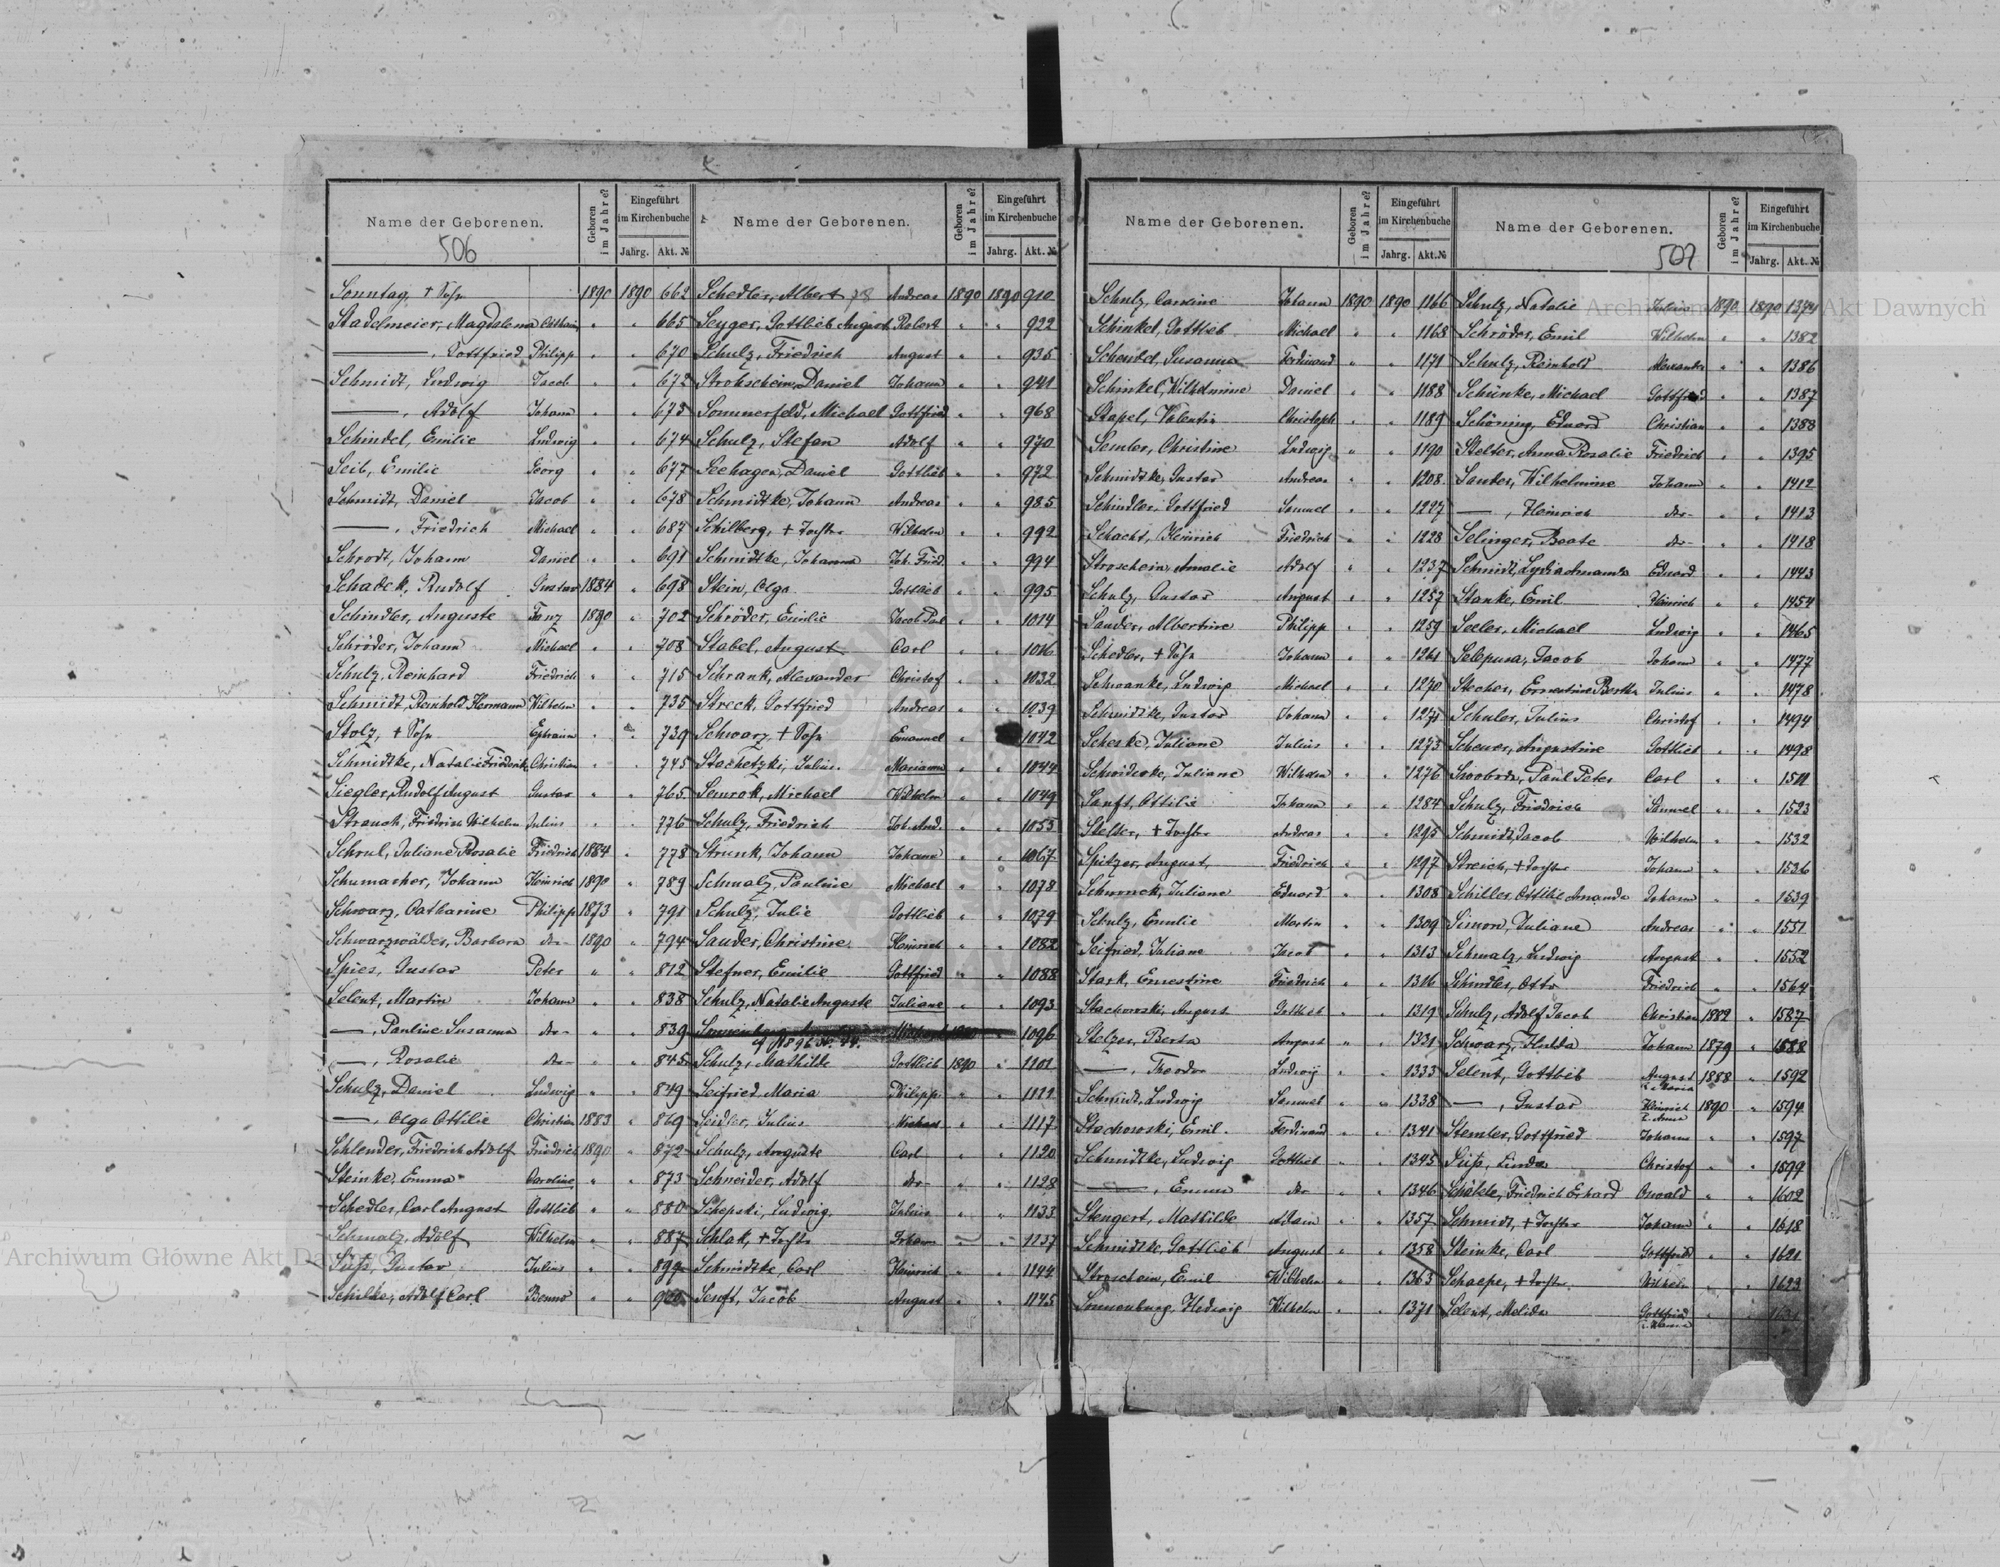 506
Name der Geborenen. Geboren im Jahre? Eingeführt im Kirchenbuche Jahrg. Akt. №
Sonntag, + Sohn 1890 1890 662
Stadelmeier, Magdalena " " 665
———, Gottfried Philipp " " 670
Schmidt, Ludwig Jacob " " 672
———, Adolf Johann " " 673
Schindel, Emilie Ludwig " " 674
Seib, Emilie Georg " " 677
Schmidt, Daniel Jacob " " 678
———, Friedrich Michael " " 687
Schrodt, Johann Daniel " " 691
Schadek, Rudolf Gustav 1884 " 698
Schindler, Auguste Franz 1890 " 702
Schröder, Johann Michael " " 708
Schulz, Reinhard Friedrich " " 715
Schmidt, Reinhold Hermann Wilhelm " " 735
Stolz, + Sohn Ephraim " " 739
Schmidtke, Natalie Friederike Christian " " 745
Siegler, Rudolf August Gustav " " 765
Strauch, Friedrich Wilhelm Julius " " 776
Schrul, Juliane Rosalie Friedrich 1884 " 778
Schumacher, Johann Heinrich 1890 " 789
Schwarz, Catharine Philipp 1873 " 791
Schwarzwälder, Barbara der 1890 " 794
Spies, Gustav Peter " " 812
Selent, Martin Johann " " 838
—, Pauline Susanna der " " 839
—, Rosalie der " " 845
Schulz, Daniel Ludwig " " 849
—, Olga Ottilie Christian 1883 " 869
Schlender, Friedrich Adolf Friedrich 1890 " 872
Steinke, Emma Caroline " " 873
Schedler, Carl August Gottlieb " " 880
Schmalz, Adolf Wilhelm " " 887
Süß, Gustav Julius " " 899
Schilke, Adolf Carl Benno " "
Name der Geborenen. Geboren im Jahre? Eingeführt im Kirchenbuche Jahrg. Akt. №
Schedler, Albert Andreas 1890 1890 910
Seyger, Gottlieb August Robert " " 922
Schulz, Friedrich August " " 935
Strohschein, Daniel Johann " " 941
Sommerfeld, Michael Gottfried " " 968
Schulz, Stefan Adolf " " 970
Seehagen, Daniel Gottlieb " " 972
Schmidtke, Johann Andreas " " 985
Schilberg, + Tochter Wilhelm " " 992
Schmidtke, Johanna Joh. Fried. " " 994
Stein, Olga Gottlieb " " 995
Schröder, Emilie Jacob Paul " " 1014
Stabel, August Carl " " 1016
Schrank, Alexander Christof " " 1032
Streck, Gottfried Andreas " " 1039
Schwarz, + Sohn Emanuel " 1042
Stachetzki, Julius. Marianna " " 1044
Semrok, Michael Wilhelm " " 1049
Schulz, Friedrich Joh. And. " " 1053
Strunk, Johann Johann " " 1067
Schmalz, Pauline Michael " " 1078
Schulz, Julie Gottlieb " " 1079
Sauder, Christine Heinrich " " 1082
Stefner, Emilie Gottfried " " 1088
Schulz, Natalie Auguste Juliane " " 1093
1096
Schulz, Mathilde Gottlieb 1890 " 1101
Seifried Maria Philipp " " 1111
Seidler, Julius Michael " " 1117
Schulz, Auguste Carl " " 1120
Schneider, Adolf der " " 1128
Schepski, Ludwig. Julius " " 1133
Schlak, + Tochter Johann " " 1137
Schmidtke, Carl Heinrich " " 1144
Senft, Jacob August " " 1145
Name der Geborenen. Geboren im Jahre? Eingeführt im Kirchenbuche Jahrg. Akt. №
Schulz, Caroline Johann 1890 1890 1166
Schinkel, Gottlieb Michael " " 1168
Scheidel, Susanna Ferdinand " " 1171
Schinkel, Wilhelmine Daniel " " 1188
Stapel, Valentin Christoph " " 1189
Semler, Christine Ludwig " " 1190
Schmidtke, Gustav Andreas " " 1208
Schindler, Gottfried Samuel " " 1227
Schacht, Heinrich Friedrich " " 1228
Stroschein, Amalie Adolf " " 1237
Schulz, Gustav August " " 1257
Sauder, Albertine Philipp " " 1259
Schedler, + Sohn Johann " " 1261
Schwanke, Ludwig Michael " " 1270
Schmidtke, Gustav Johann " " 1271
Scheske, Juliane Julius " " 1273
Juliane Wilhelm " " 1276
Sanft, Ottilie Johann " " 1284
Stelter, + Tochter Andreas " " 1295
Spitzer, August, Friedrich " " 1297
Juliane Eduard " " 1308
Schulz, Emilie Martin " " 1309
Seifried, Juliane Jacob " " 1313
Stark, Ernestine Friedrich " " 1316
Stachowski, August Gottlieb " " 1319
Stelzer, Berta August " " 1331
—, Theodor Ludwig " " 1333
Schmidt, Ludwig Samuel " " 1338
Stachowski, Emil. Ferdinand " " 1341
Schmidtke, Ludwig Gottlieb " " 1345
———, Emma der " " 1346
Stengert, Mathilde Adam " " 1357
Schmidtke, Gottlieb August " " 1358
Stroschein, Emil Wilhelm " " 1363
Sonnenburg, Hedwig Wilhelm " " 1371
507
Name der Geborenen. Geboren im Jahre? Eingeführt im Kirchenbuche Jahrg. Akt. №
Schulz, Natalie Julius 1890 1890 1374
Schröder, Emil Wilhelm " " 1382
Schulz, Reinhold Alexander " " 1386
Schünke, Michael Gottfried " " 1387
Schöning, Eduard Christian " " 1388
Stelter, Anna Rosalie Friedrich " " 1395
Sauter, Wilhelmine Johann " " 1412
—, Heinrich der " " 1413
Selinger, Beate der " " 1418
Schmidt, Lydia Amanda Eduard " " 1443
Stanke, Emil Heinrich " " 1454
Seeler, Michael Ludwig " " 1465
Jacob Johann " " 1477
Stecher, Ernestine Bertha Julius " " 1478
Schuler, Julius Christof " " 1494
Scheuer, Augustine Gottlieb " " 1498
Swoboda, Paul Peter Carl " " 1511
Schulz, Friedrich Samuel " " 1523
Schmidt, Jacob Wilhelm " " 1532
Streich, + Tochter Johann " " 1536
Schiller, Ottilie Amanda Johann " " 1539
Simon, Juliane Andreas " " 1551
Schmalz, Ludwig August " " 1552
Schindler, Otto Friedrich " " 1564
Schulz, Adolf Jacob Christian 1882 " 1587
Schwarz, Hulda Johann 1879 " 1588
Selent, Gottlieb August 1888 " 1592
—, Gustav Heinrich 1890 " 1594
Stemler, Gottfried Johann " " 1597
Süß, Linda Christof " " 1599
Friedrich Erhard Oswald " " 1602
Schmidt, + Tochter Johann " " 1618
Steinke, Carl Gottfried " " 1621
Schaepe, + Tochter Wilhelm " " 1623
Selent, Melida Gottfried " " 1631
Archiwum Główne Akt Dawnych
Archiwum Akt Dawnych